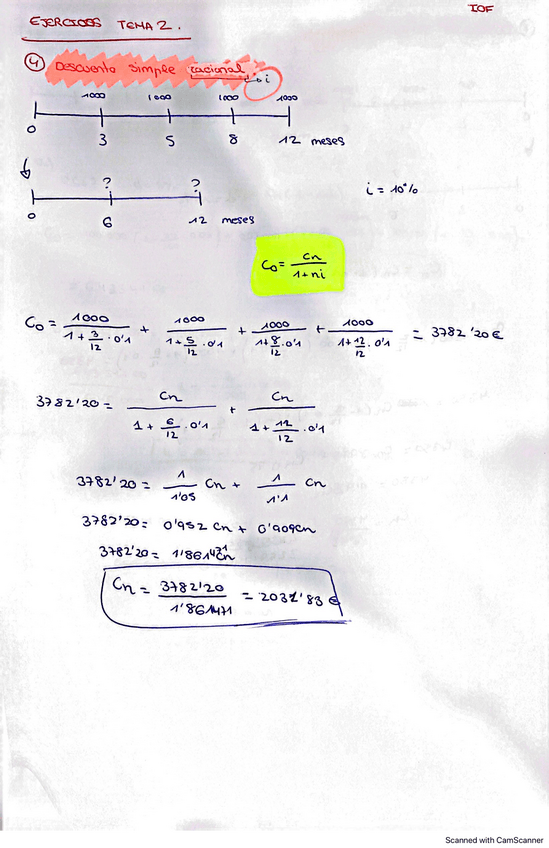 IOF
EJERCICIOS TEMA 2.
4 Descuento simple racional → i
1000 1000 1000 1000
0 3 5 8 12 meses
? ?
0 6 12 meses
i = 10%
C0 = Cn / 1+ni
C0 = 1000 / 1 + 3/12 · 0'1 + 1000 / 1 + 5/12 · 0'1 + 1000 / 1 + 8/12 · 0'1 + 1000 / 1 + 12/12 · 0'1 = 3782'20 €
3782'20 = Cn / 1 + 6/12 · 0'1 + Cn / 1 + 12/12 · 0'1
3782'20 = 1 / 1'05 Cn + 1 / 1'1 Cn
3782'20 = 0'952 Cn + 0'909 Cn
3782'20 = 1'861471 Cn
Cn = 3782'20 / 1'861471 = 2031'83 €
Scanned with CamScanner